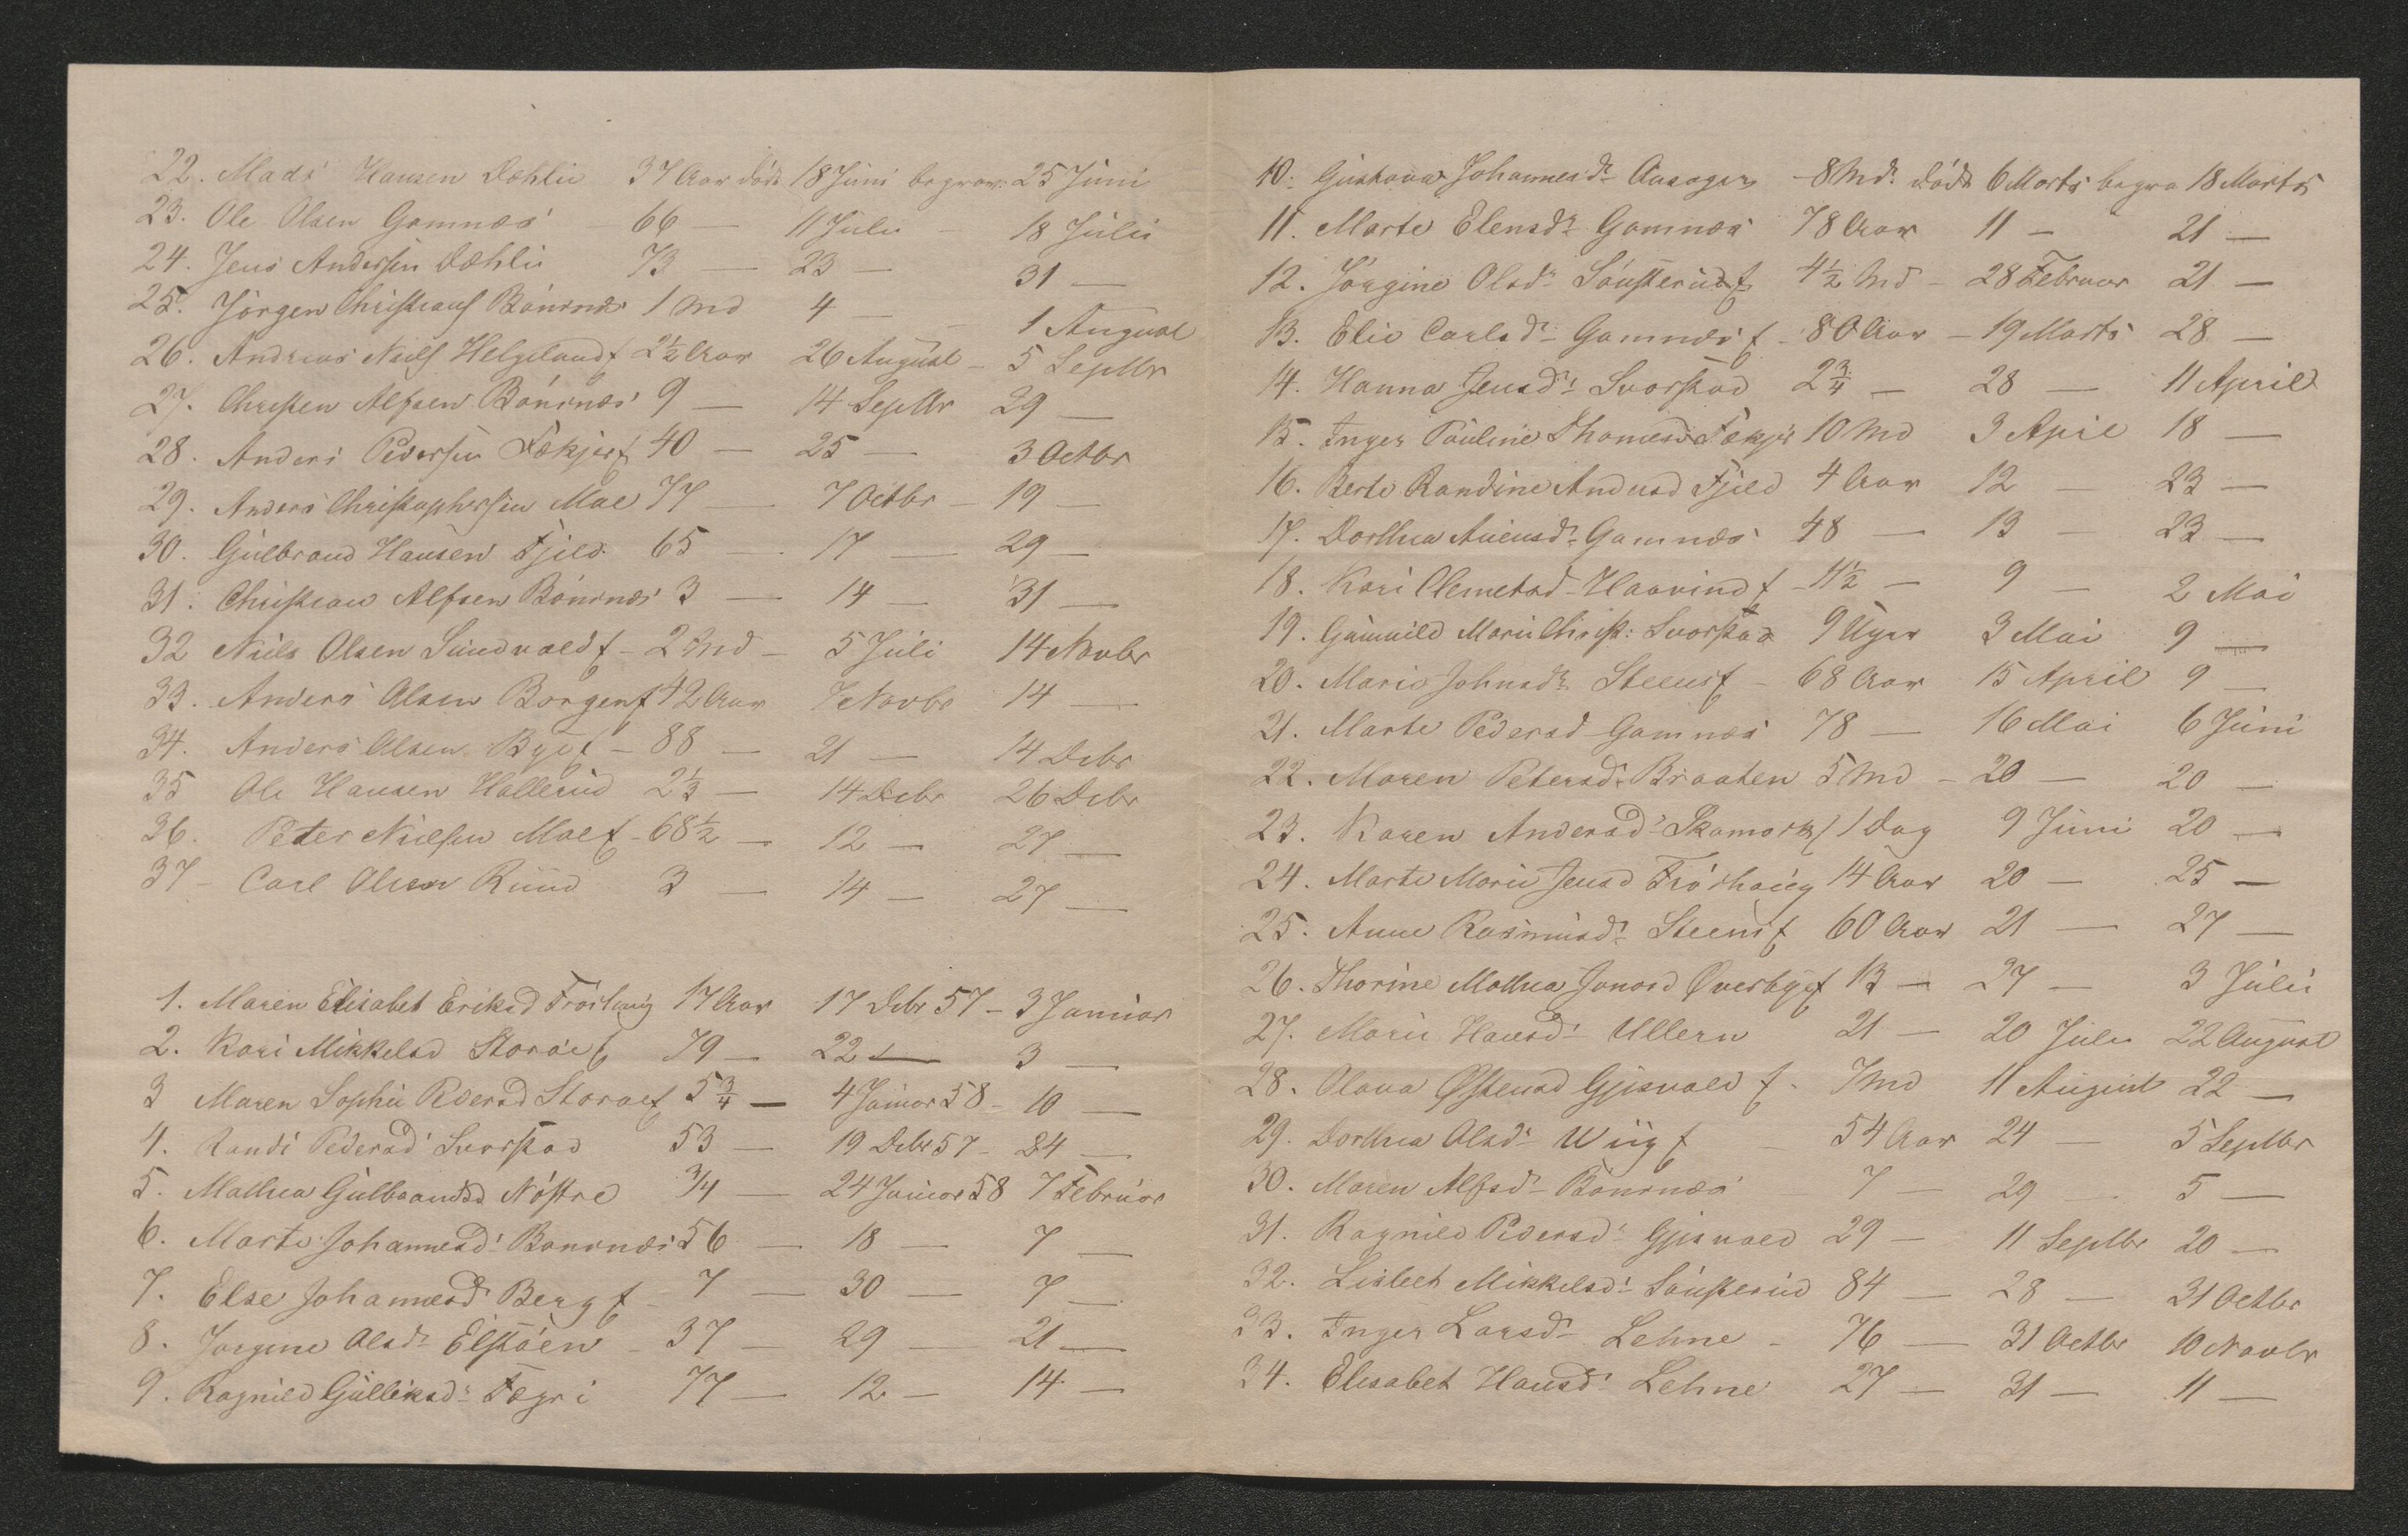 22. Mads Hansen Dæhlie 37 Aar døde 18 Juni begrav: 25 Juni
23. Ole Olsen Gamnæs 66 — 11 Juli — 18 Juli
24. Jens Andersen Dæhlie 73 — 23 — 31 —
25. Jörgen Christians Bönsnæs 1 Md 4 — — 1 August
26. Andreas Niels Helgelands 2½ Aar 26 August — 5 Septbr
27. Christen Alfsen Bönsnæs 9 — 14 Septbr 29 —
28. Anders Pedersen Fækjer 40 — 25 — 3 Octbr
29. Anders Christophersen Moe 77 — 7 Octbr — 19 —
30. Gulbrand Hansen Fjeld 65 — 17 — 29 —
31. Christian Alfsen Bönsnæs 3 — 14 — 31 —
32 Niels Olsen Sundvold — 2 Md — 5 Juli 14 Novbr
33. Anders Olsen Borgen 42 Aar 7 Novbr 14 —
34. Anders Olsen Bye — 88 — 21 — 14 Debr
35 Ole Hansen Hallerud 2⅓ — 14 Debr 26 Debr
36. Peter Nielsen Moe — 68½ — 12 — 27 —
37 — Carl Olsen Ruud 3 — 14 — 27 —
1. Maren Elisabet Eriksd Fröshaug 17 Aar 17 Debr 57 — 3 Januar
2. Kari Mikkelsd Storöe 79 — 22 — 3 —
3 Maren Sophie Pedersd Storöe 5¾ — 4 Januar 58 — 10 —
4. Randi Pedersd Svarstad 53 — 19 Debr 57 — 24 —
5. Mathea Gulbrandsd Nöstre ¾ — 24 Januar 58 7 Februar
6. Marte Johannesd Bönsnæs 56 — 18 — 7 —
7. Else Johannesd Berg — 7 — 30 — 7 —
8. Jörgine Olsdr Elstöen — 37 — 29 — 21 —
9. Ragnild Gulliksdr Fægri 77 — 12 — 14 —
10. Gustava Johannesdr Aasager — 8 Md. døde 6 Marts begra 18 Marts
11. Marte Elensdr Gamnæs 78 Aar 11 — 21 —
12. Jörgine Olsdr Sönsterud 4½ Md — 28 Februar 21 —
13. Elie Carlsdr Gamnæs — 80 Aar — 19 Marts 28 —
14. Hanna Jensdr Svarstad 2¾ — 28 — 11 April
15. Inger Pauline Thomesdr Fækjer 10 Md 3 April 18 —
16. Berte Randine Andersd Fjeld 4 Aar 12 — 23 —
17. Dorthea Auensdr Gamnæs 48 — 13 — 23 —
18. Kari Clemetsd Haavind — 11½ — 9 — 2 Mai
19. Gunnild Marie Christ: Svarstad 9 Uger 3 Mai 9 —
20. Marie Johnsdr Steens — 68 Aar 15 April 9 —
21. Marte Pedersd Gamnæs 78 — 16 Mai 6 Juni
22. Maren Petersd Braaten 5 Md — 20 — 20 —
23. Karen Andersd Skamark 1 Dag 9 Juni 20 —
24. Marte Marie Jensd Fröshaug 14 Aar 20 — 25 —
25. Anne Rasmusdr Steens 60 Aar 21 — 27 —
26. Thorine Mathea Jonasd Øverbye 13 — 27 — 3 Juli
27. Marie Hansdr Ullern 21 — 20 Juli 22 August
28. Olava Østensd Gjesvold — 7 Md 11 August 22 —
29. Dorthea Olsdr Wiig — 54 Aar 24 — 5 Septbr
30. Maren Alfsdr Bönsnæs 7 — 29 — 5 —
31. Ragnild Pedersd Gjesvold 29 — 11 Septbr 20 —
32. Lisbet Mikkelsdr Sönsterud 84 — 28 — 31 Octbr
33. Inger Larsdr Lehne — 76 — 31 Octbr 10 Novbr
34. Elisabet Hansdr Lehne 27 — 31 — 11 —